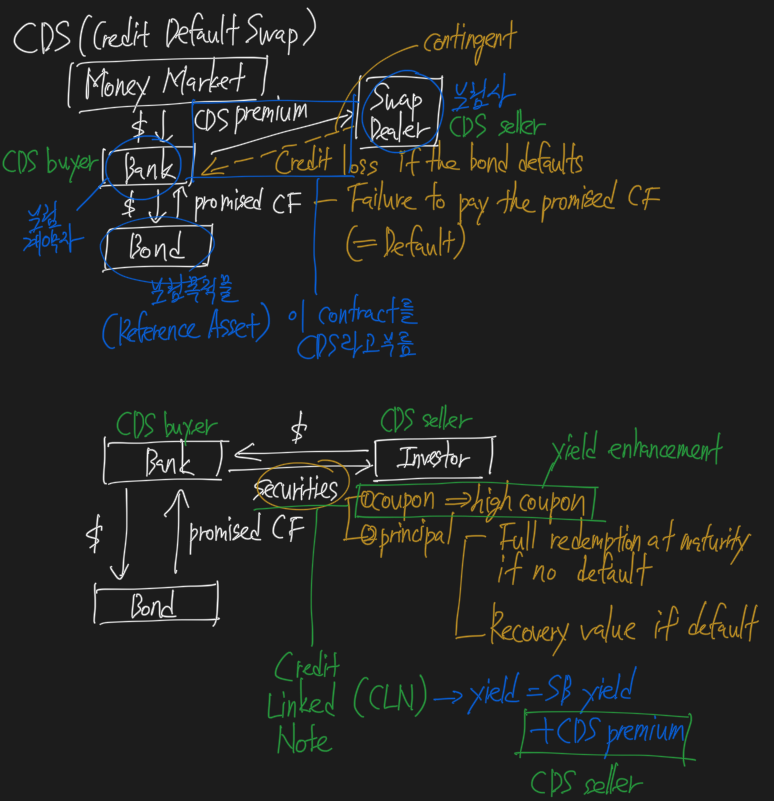 CDS (Credit Default Swap)
contingent
Money Market
$
CDS premium
Swap
Dealer
보험사
CDS seller
CDS buyer
Bank
Credit loss if the bond defaults
$
promised CF
Failure to pay the promised CF
(= Default)
보험
계약자
Bond
보험목적물
(Reference Asset)
이 contract를
CDS라고 부름
CDS buyer
$
CDS seller
Bank
Investor
yield enhancement
securities
① coupon ⇒ high coupon
② principal
Full redemption at maturity
if no default
$
promised CF
Bond
Recovery value if default
Credit
Linked
Note
(CLN)
→ yield = SB yield
+ CDS premium
CDS seller